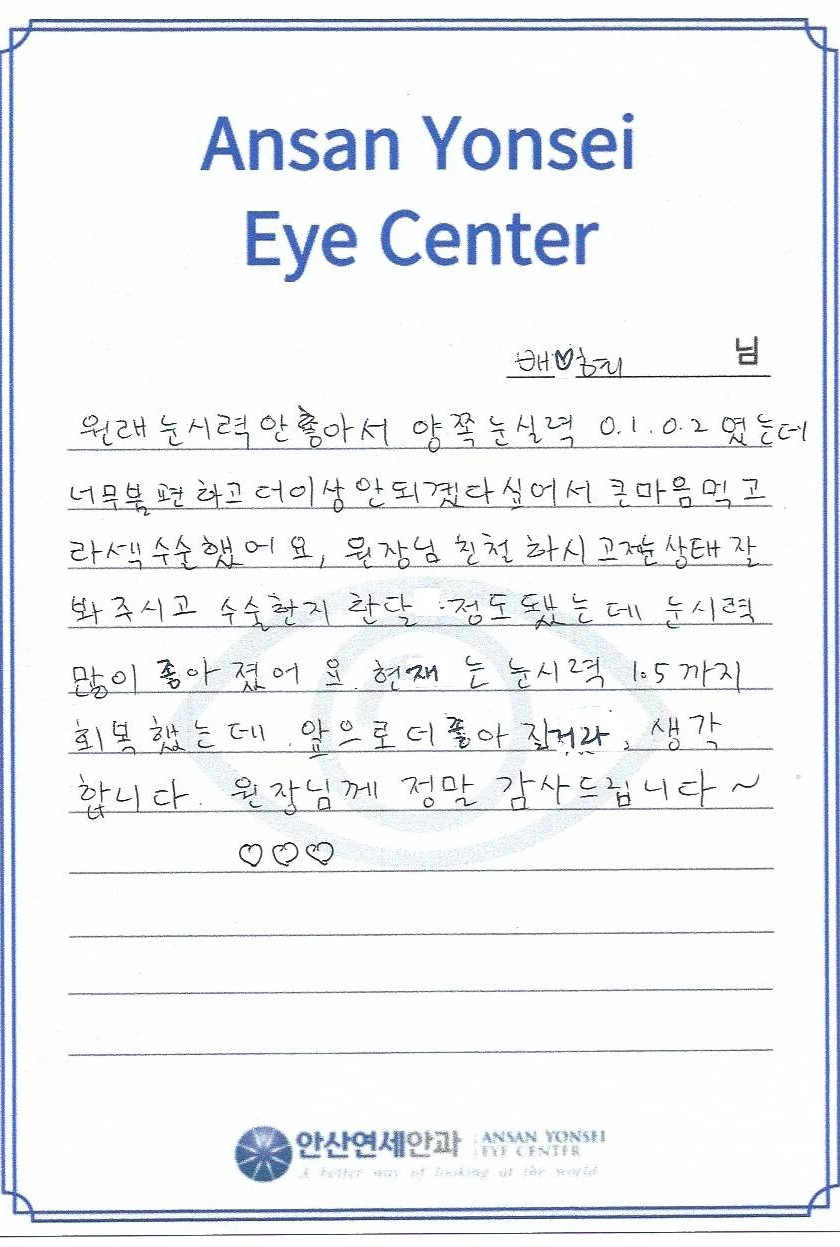 Ansan Yonsei
Eye Center
배♡리 님
원래 눈시력 안 좋아서 양쪽 눈실력 0.1. 0.2 였는데
너무불편하고 더이상 안되겠다 싶어서 큰마음먹고
라섹수술했어요, 원장님 친절하시고 눈상태 잘
봐주시고 수술한지 한달 정도 됐는데 눈시력
많이 좋아졌어요. 현재는 눈시력 1.5까지
회복했는데 앞으로 더 좋아질거라 생각
합니다. 원장님께 정말 감사드립니다~
♡♡♡
안산연세안과 ANSAN YONSEI
EYE CENTER
A better way of looking at the world